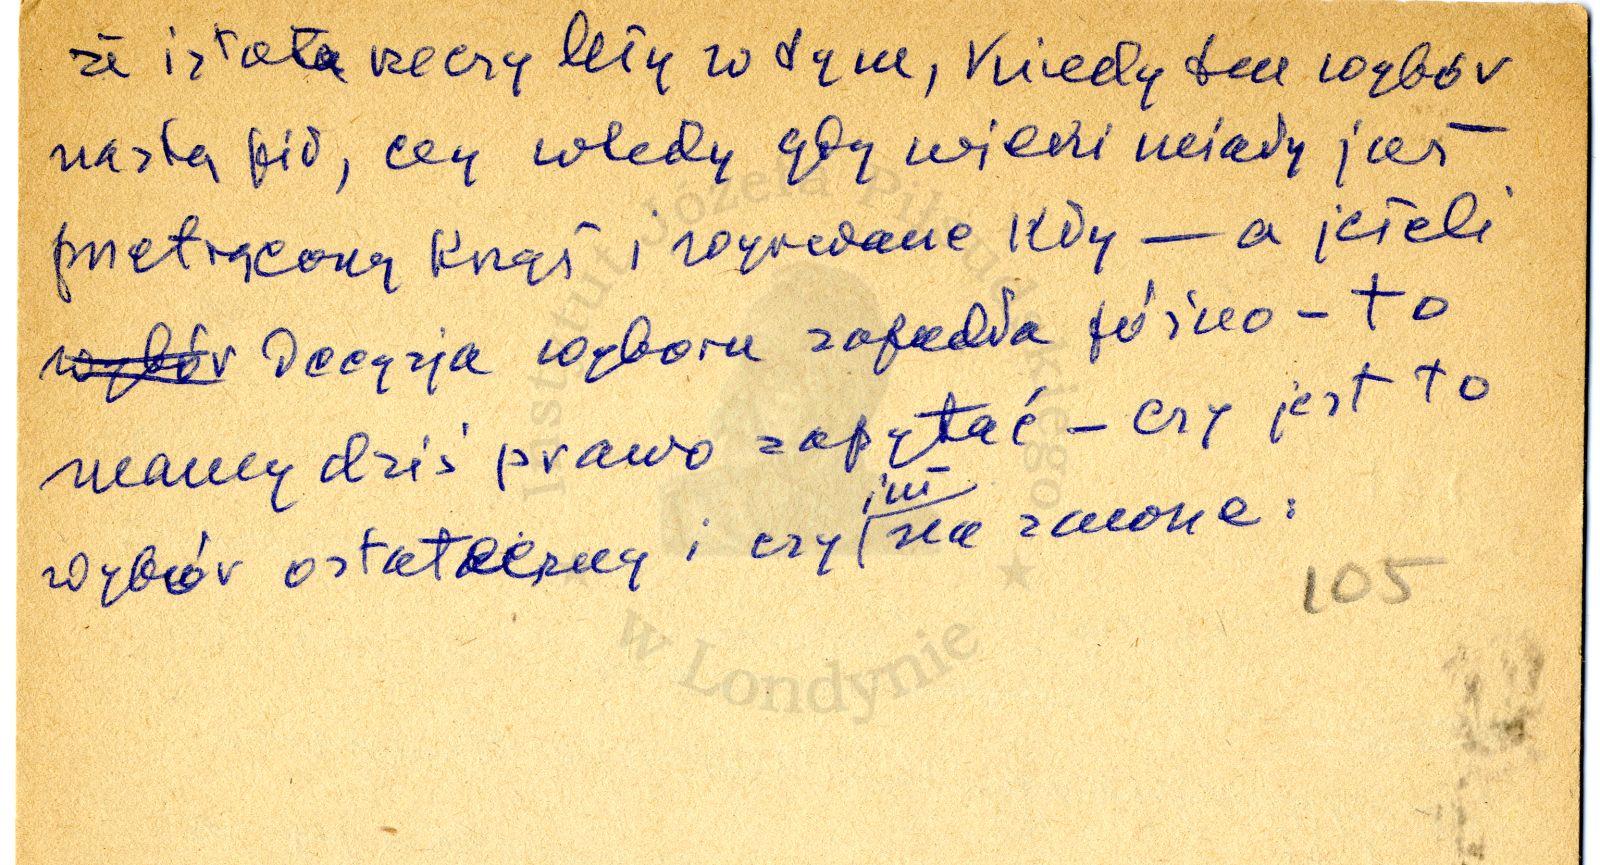 że istota rzeczy leży w tym, kiedy ten wybór
nastąpił, czy wtedy gdy miedzi miały już
przetrąconą krzyż i wyrwane kły — a jeżeli
wybór Decyzja wyboru zapadła późno – to
mamy dziś prawo zapytać – czy jest to
wybór ostateczny i czy już na zawsze:
105
Instytut Józefa Piłsudskiego
w Londynie